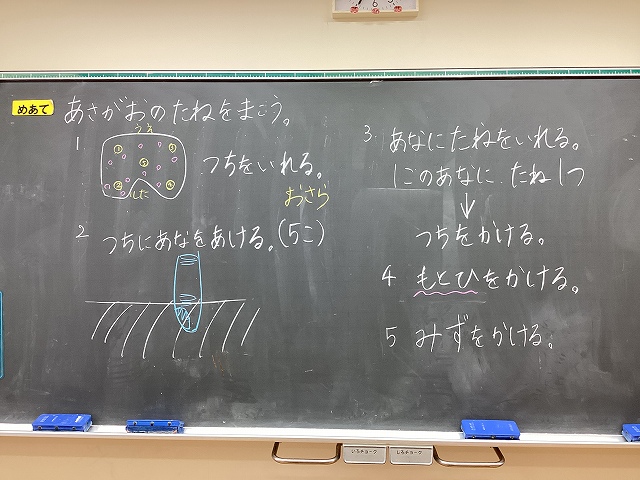 めあて あさがおのたねをまこう。
1
うえ
1 3
2
4 5
した
つちをいれる。
おさら
2 つちにあなをあける。(5こ)
3. あなにたねをいれる。
1このあなに たね1つ
↓
つちをかける。
4 もとひをかける。
5 みずをかける。
いろチョーク しろチョーク